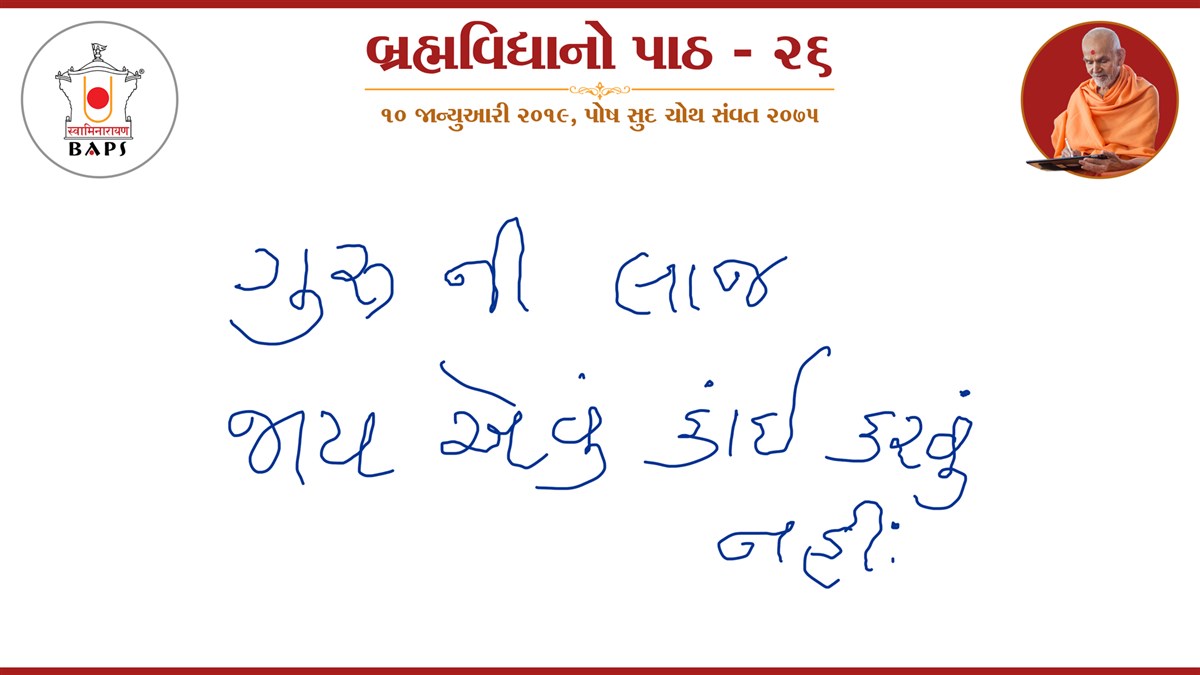 બ્રહ્મવિદ્યાનો પાઠ - ૨૬
૧૦ જાન્યુઆરી ૨૦૧૯, પોષ સુદ ચોથ સંવત ૨૦૭૫
स्वामिनारायण
BAPS
ગુરુ ની લાજ
જાય એવું કાંઈ કરવું
નહીં.